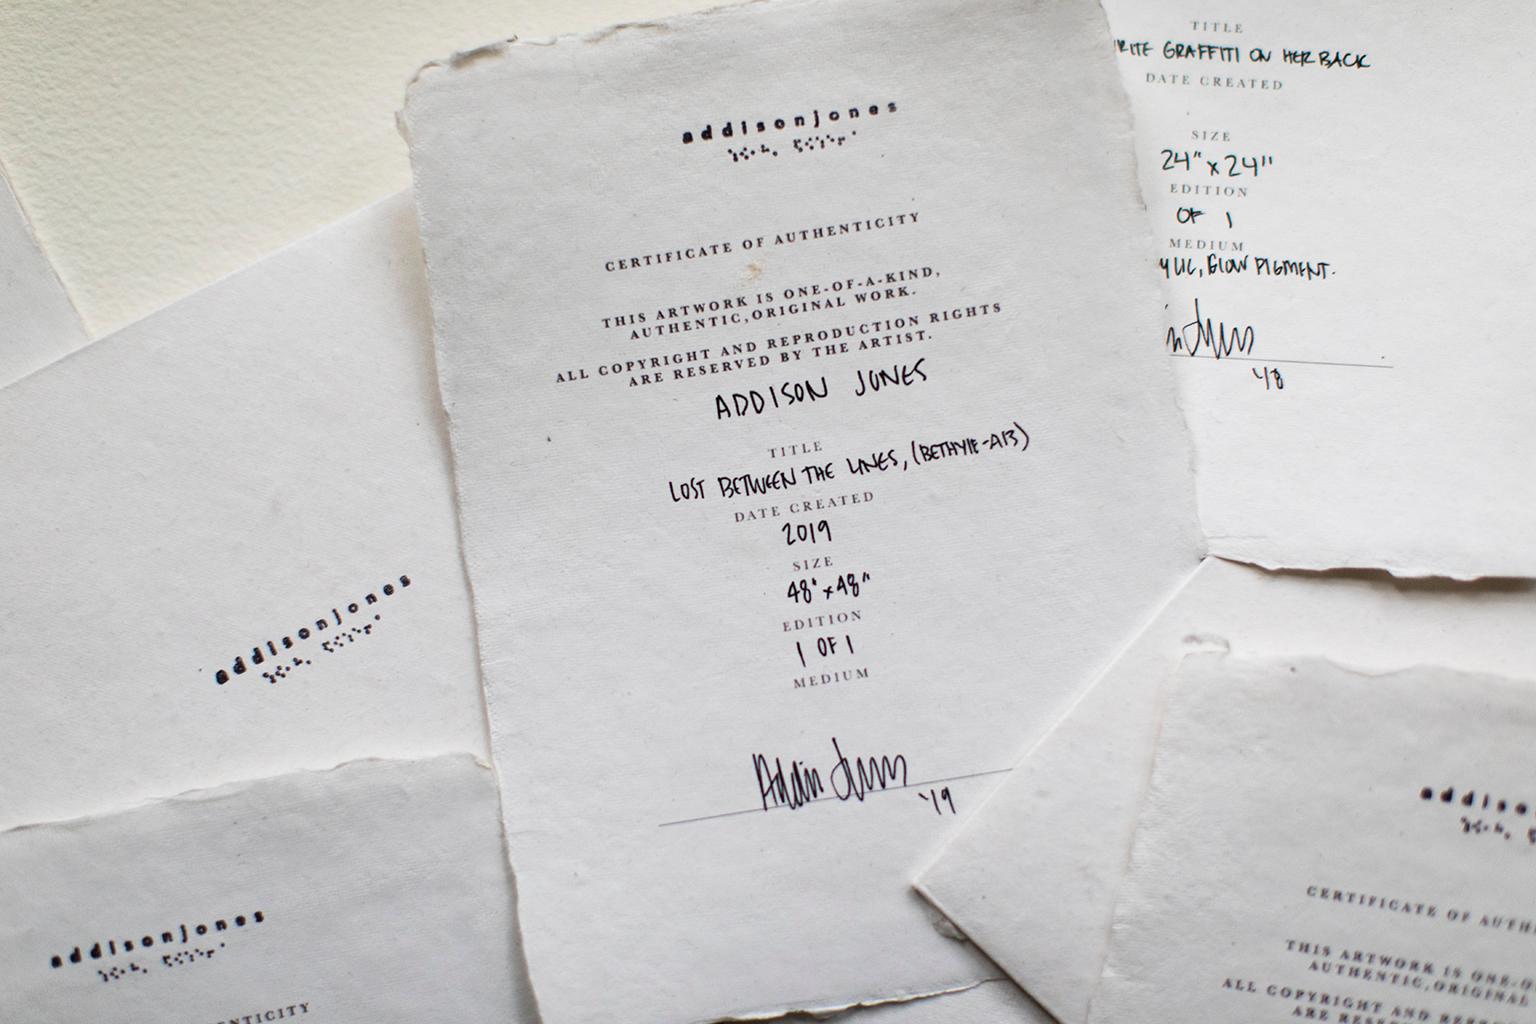 addisonjones
CERTIFICATE OF AUTHENTICITY
THIS ARTWORK IS ONE-OF-A-KIND,
AUTHENTIC,ORIGINAL WORK.
ALL COPYRIGHT AND REPRODUCTION RIGHTS
ARE RESERVED BY THE ARTIST.
ADDISON JONES
TITLE
LOST BETWEEN THE LINES,
DATE CREATED
2019
SIZE
48" x 48"
EDITION
1 OF 1
MEDIUM
'19
TITLE
GRAFFITI ON HER BACK
DATE CREATED
SIZE
24" x 24"
EDITION
OF 1
MEDIUM
GLOW PIGMENT.
'18
addisonjones
addisonjones
addiso
CERTIFICATE OF AUTH
THIS ARTWORK IS ONE-O
AUTHENTIC,ORIGINAL
ALL COPYRIGHT AND REPRO
ARE RESER
NTICITY